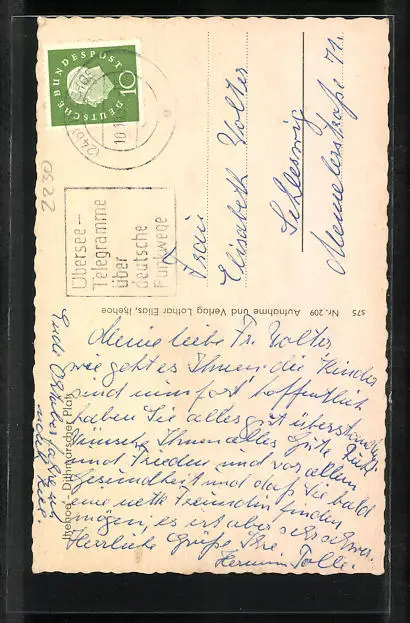 DEUTSCHE BUNDESPOST
10
(24b)
Übersee-
Telegramme
über
deutsche
Funkwege
Frau
Elisabeth Wolter
Schleswig
Memelerstraße 71.
2230
s75 Nr. 209 Aufnahme und Verlag Lothar Elios, Itzehoe
Itzehoe - Dithmarscher Platz
Meine liebe Fr. Wolter
wie geht es Ihnen, die Kinder
sind nun fort hoffentlich
haben Sie alles gut überstanden
wünsche Ihnen alles Gute Glück
und Frieden und vor allem
Gesundheit und daß Sie bald
eine nette Freundin finden
mögen, es ist aber sehr schwer.
Herzliche Grüße Ihre
Hermin Tolle.
Ende Oktober fahre ich
nach Kiel.